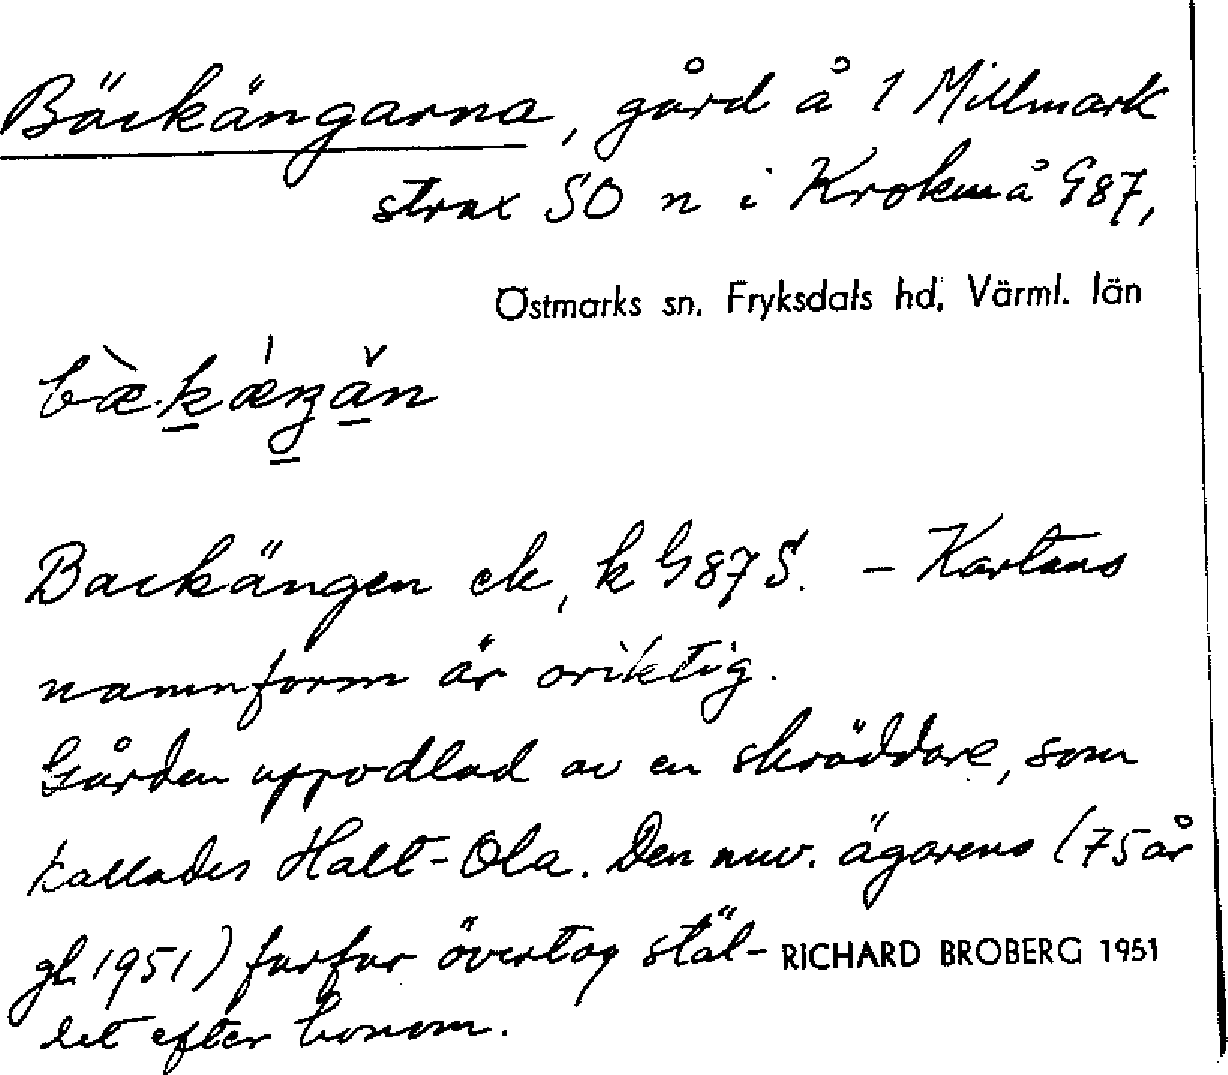 Bäckängarna, gård å 1 Millmark
strax SO n i Krokenå G87,
Östmarks sn, Fryksdals hd, Värml. län
Backängen ek, k G87 S. – Kartans
namnform är oriktig.
Gården uppodlad av en skräddare, som
kallades Halt-Ola. Den nuv. ägarens (75 år
gl. 1951) farfar övertog stäl-
RICHARD BROBERG 1951
let efter honom.